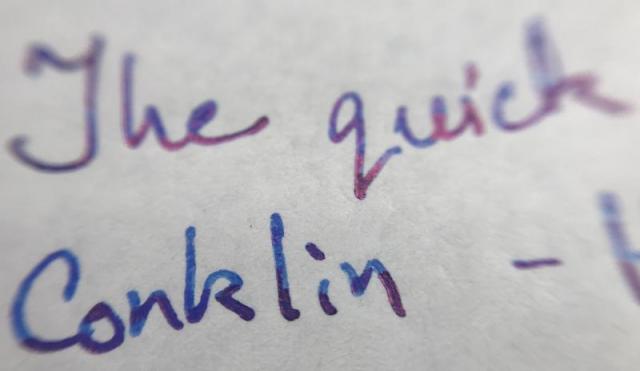 The quick
Conklin -